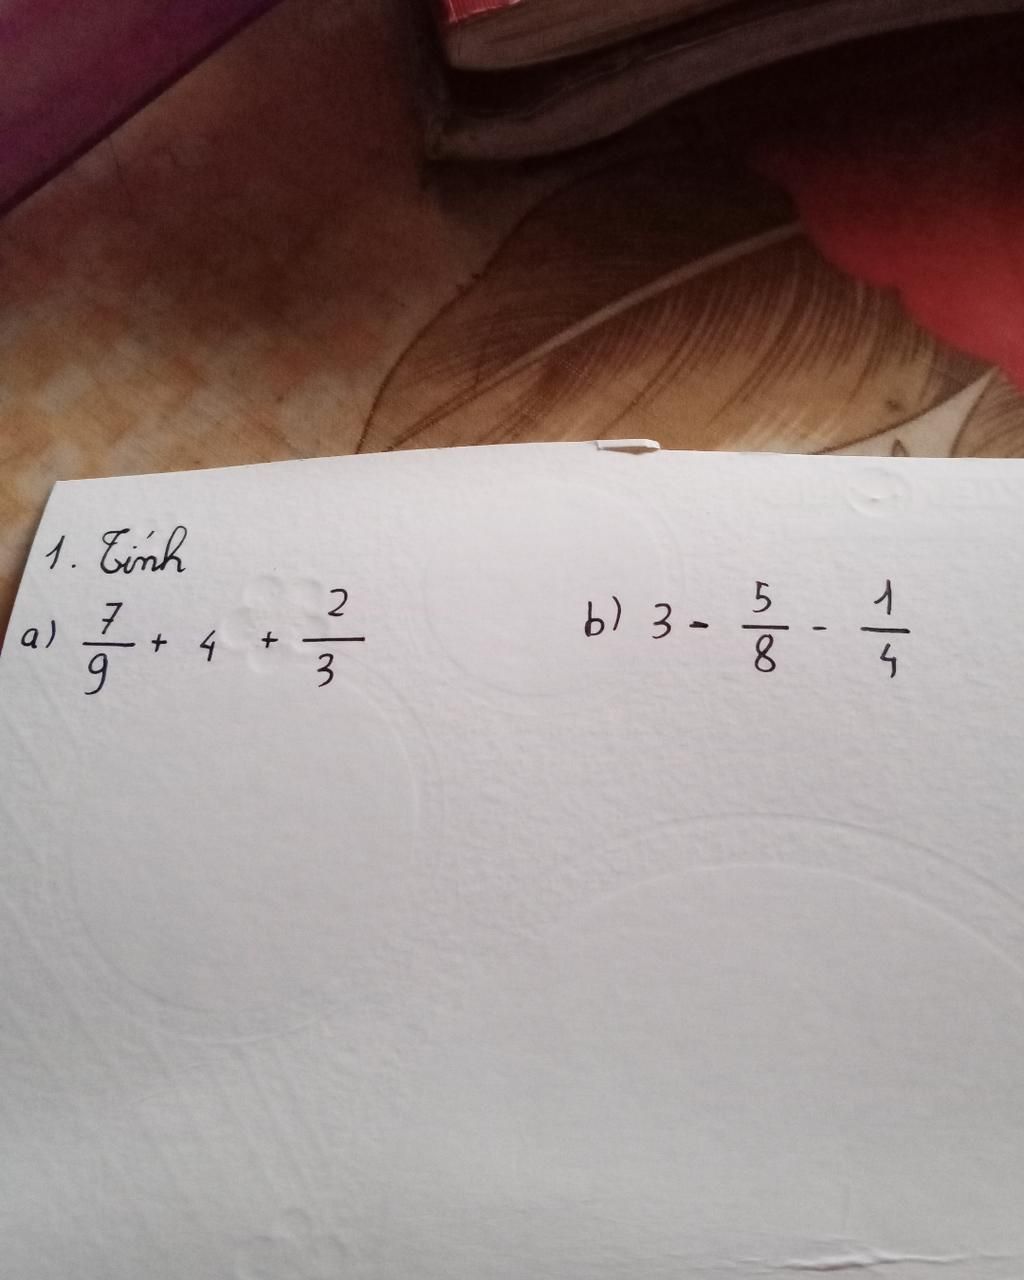 1. Tính
a) 7/9 + 4 + 2/3 b) 3 - 5/8 - 1/4